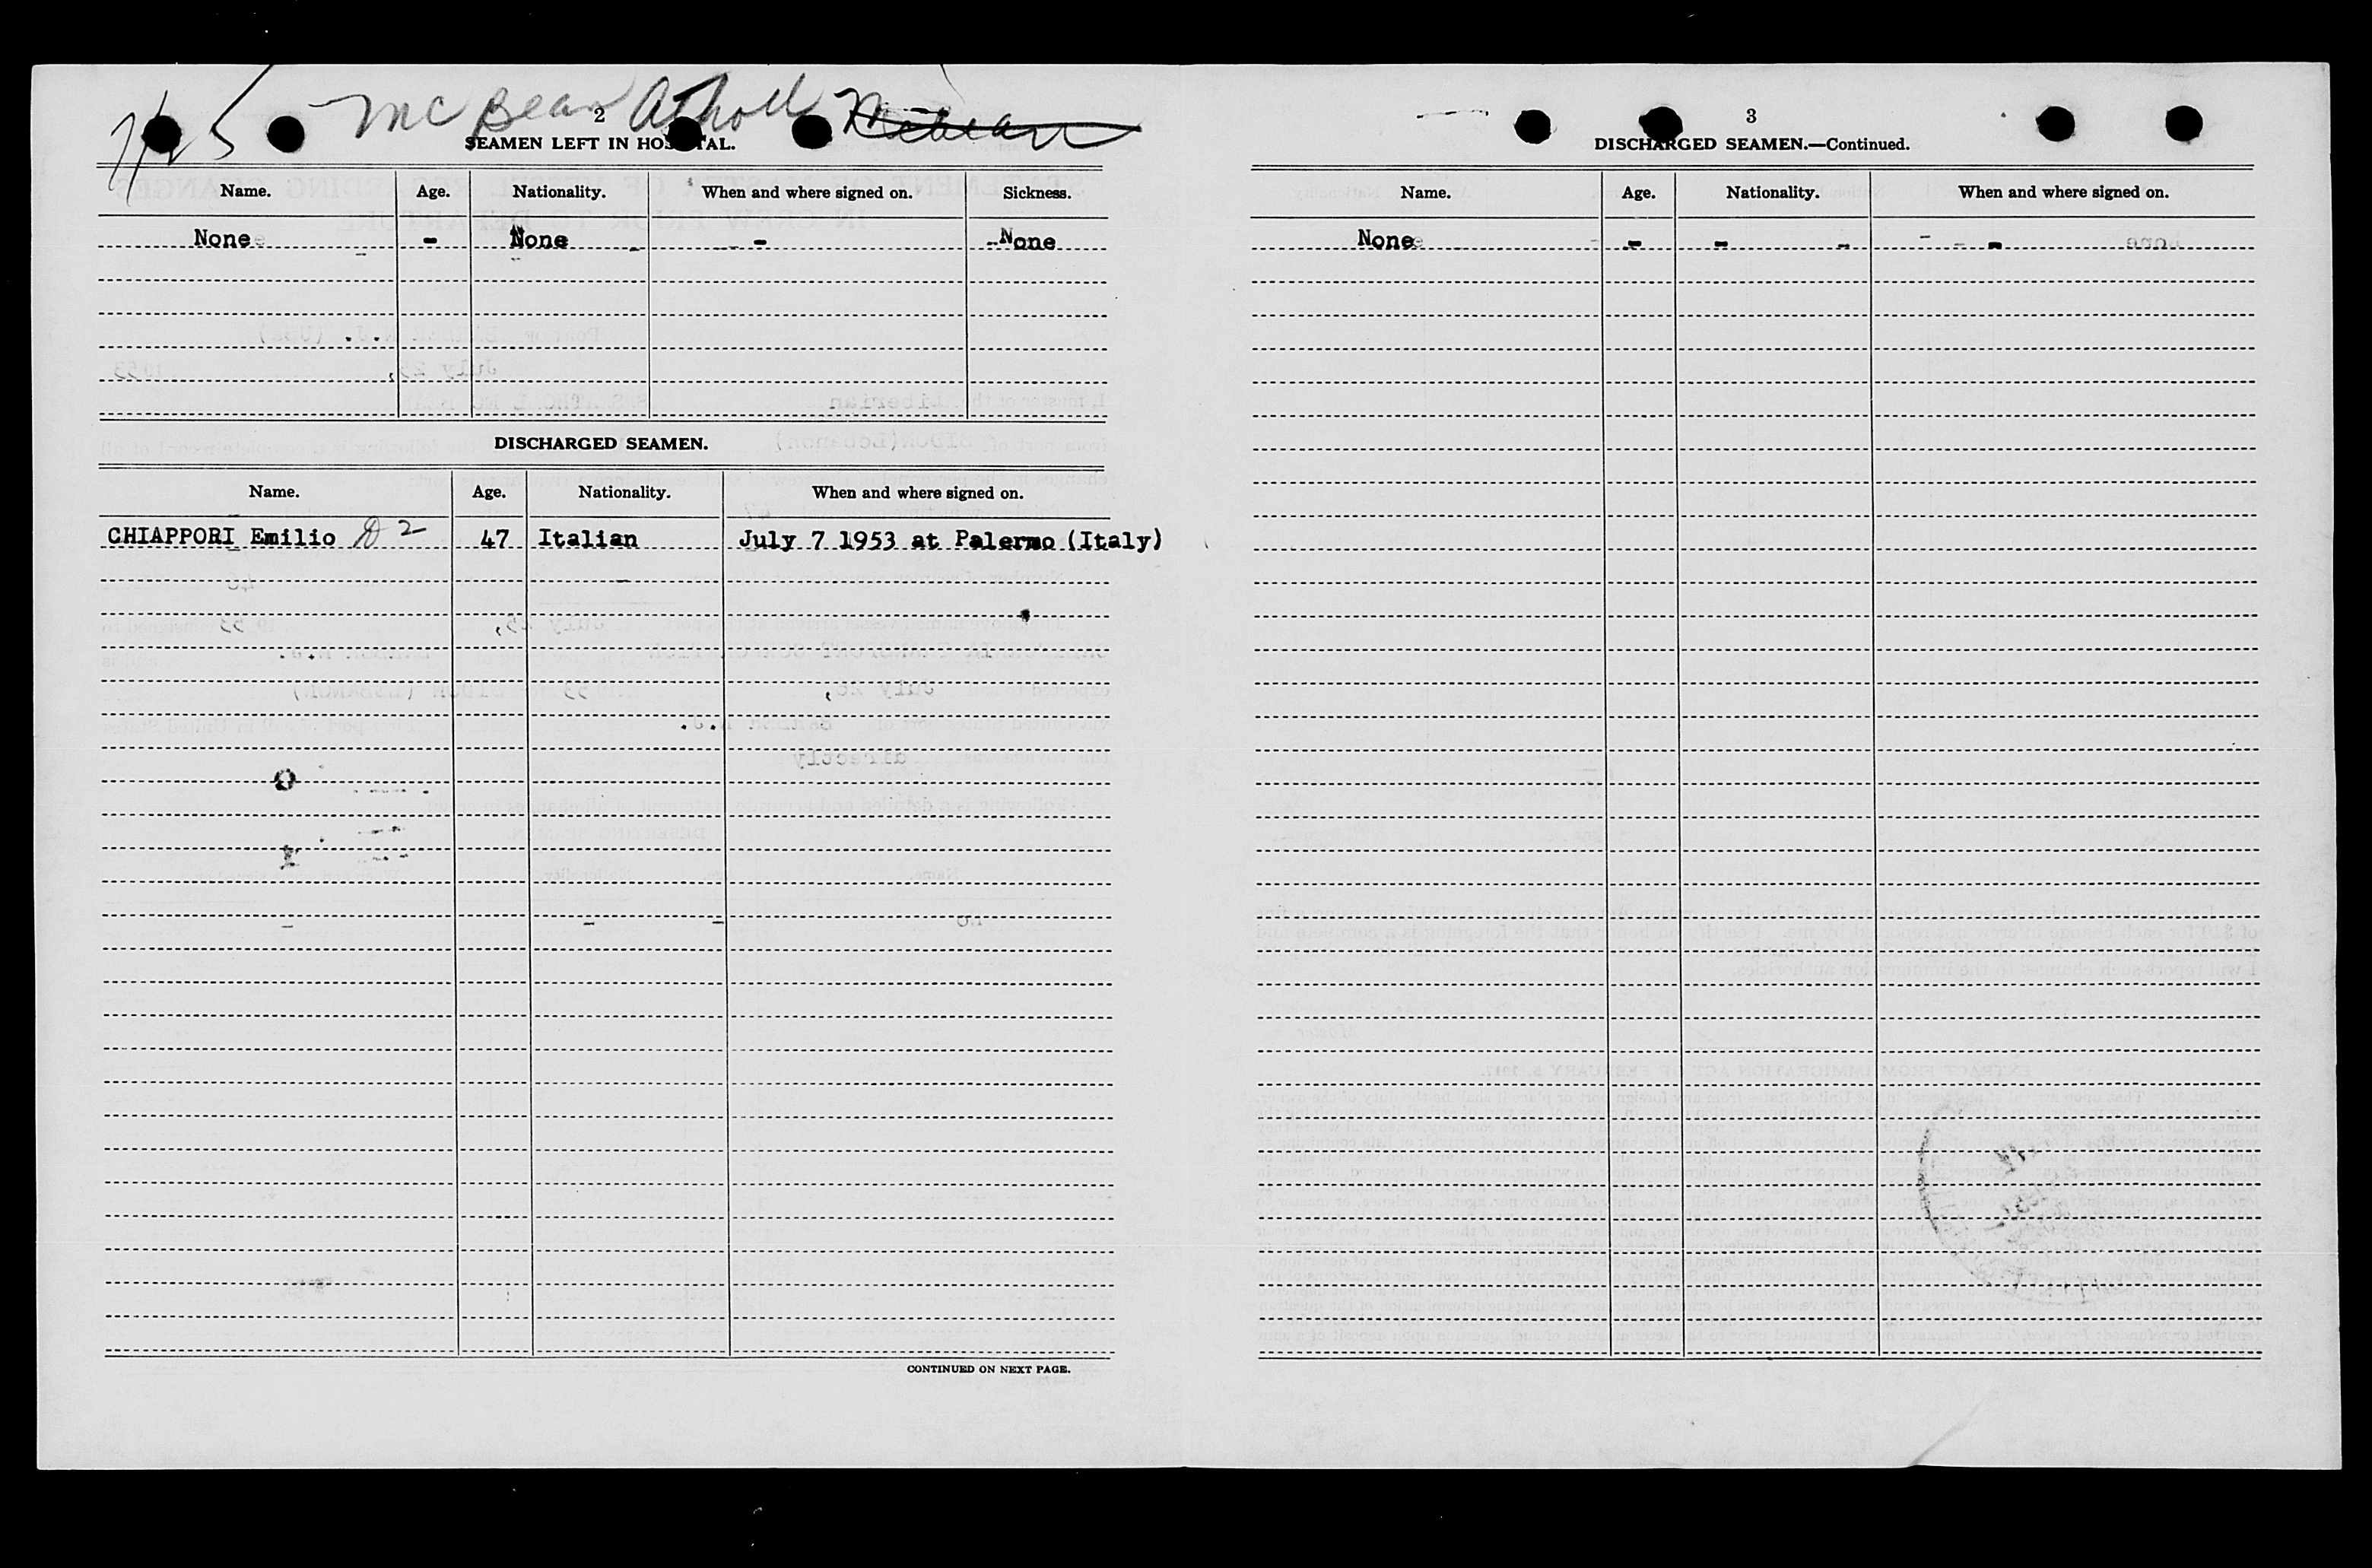 7/25 McBean Atholl McBean
2
SEAMEN LEFT IN HOSPITAL.
Name. Age. Nationality. When and where signed on. Sickness.
None - None - - - None
DISCHARGED SEAMEN.
Name. Age. Nationality. When and where signed on.
CHIAPPORI Emilio D 2 47 Italian July 7 1953 at Palermo (Italy)
CONTINUED ON NEXT PAGE.
3
DISCHARGED SEAMEN.—Continued.
Name. Age. Nationality. When and where signed on.
None - - - - - -